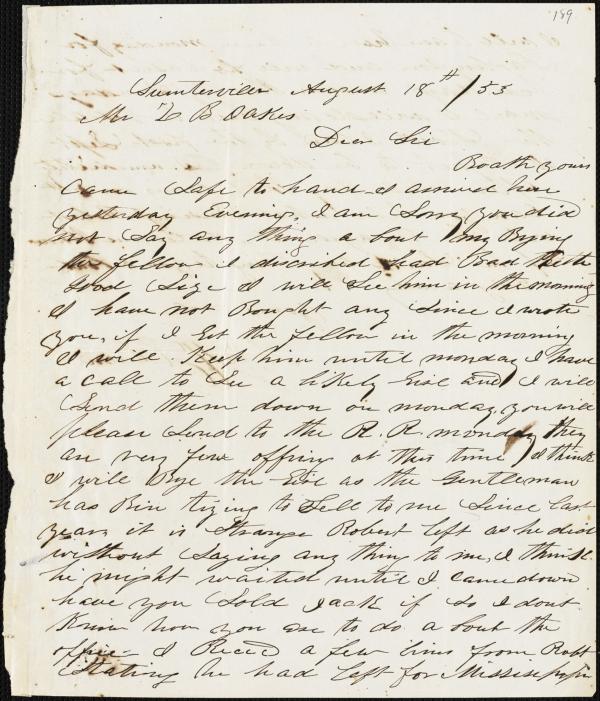 189
Sumterville August 18th/53
Mr Z B Oakes
Dear Sir
Boath yours
Came Safe to hand I arived here
yesterday Evening, I am Sorry you did
not Say any thing a bout my Bying
the fellow I discribed had Bad teeth
Good Size I will See him in the morning
I have not Bought any Since I wrote
you, if I Get the fellow in the morning
I will Keep him until monday I have
a call to See a likely Girl and I will
Send them down on monday, you will
please Send to the R. R. monday they
are very few offring at this time I think
I will Bye the Girl as the Gentleman
has Bin trying to Sell to me Since last
year, it is Strange Robert left as he did
without Saying any thing to me, I think
he might waited until I came down
have you Sold Jack if So I dont
Know how you are to do a bout the
office I Reced a few lines from Robt
Stating he had left for Mississippi